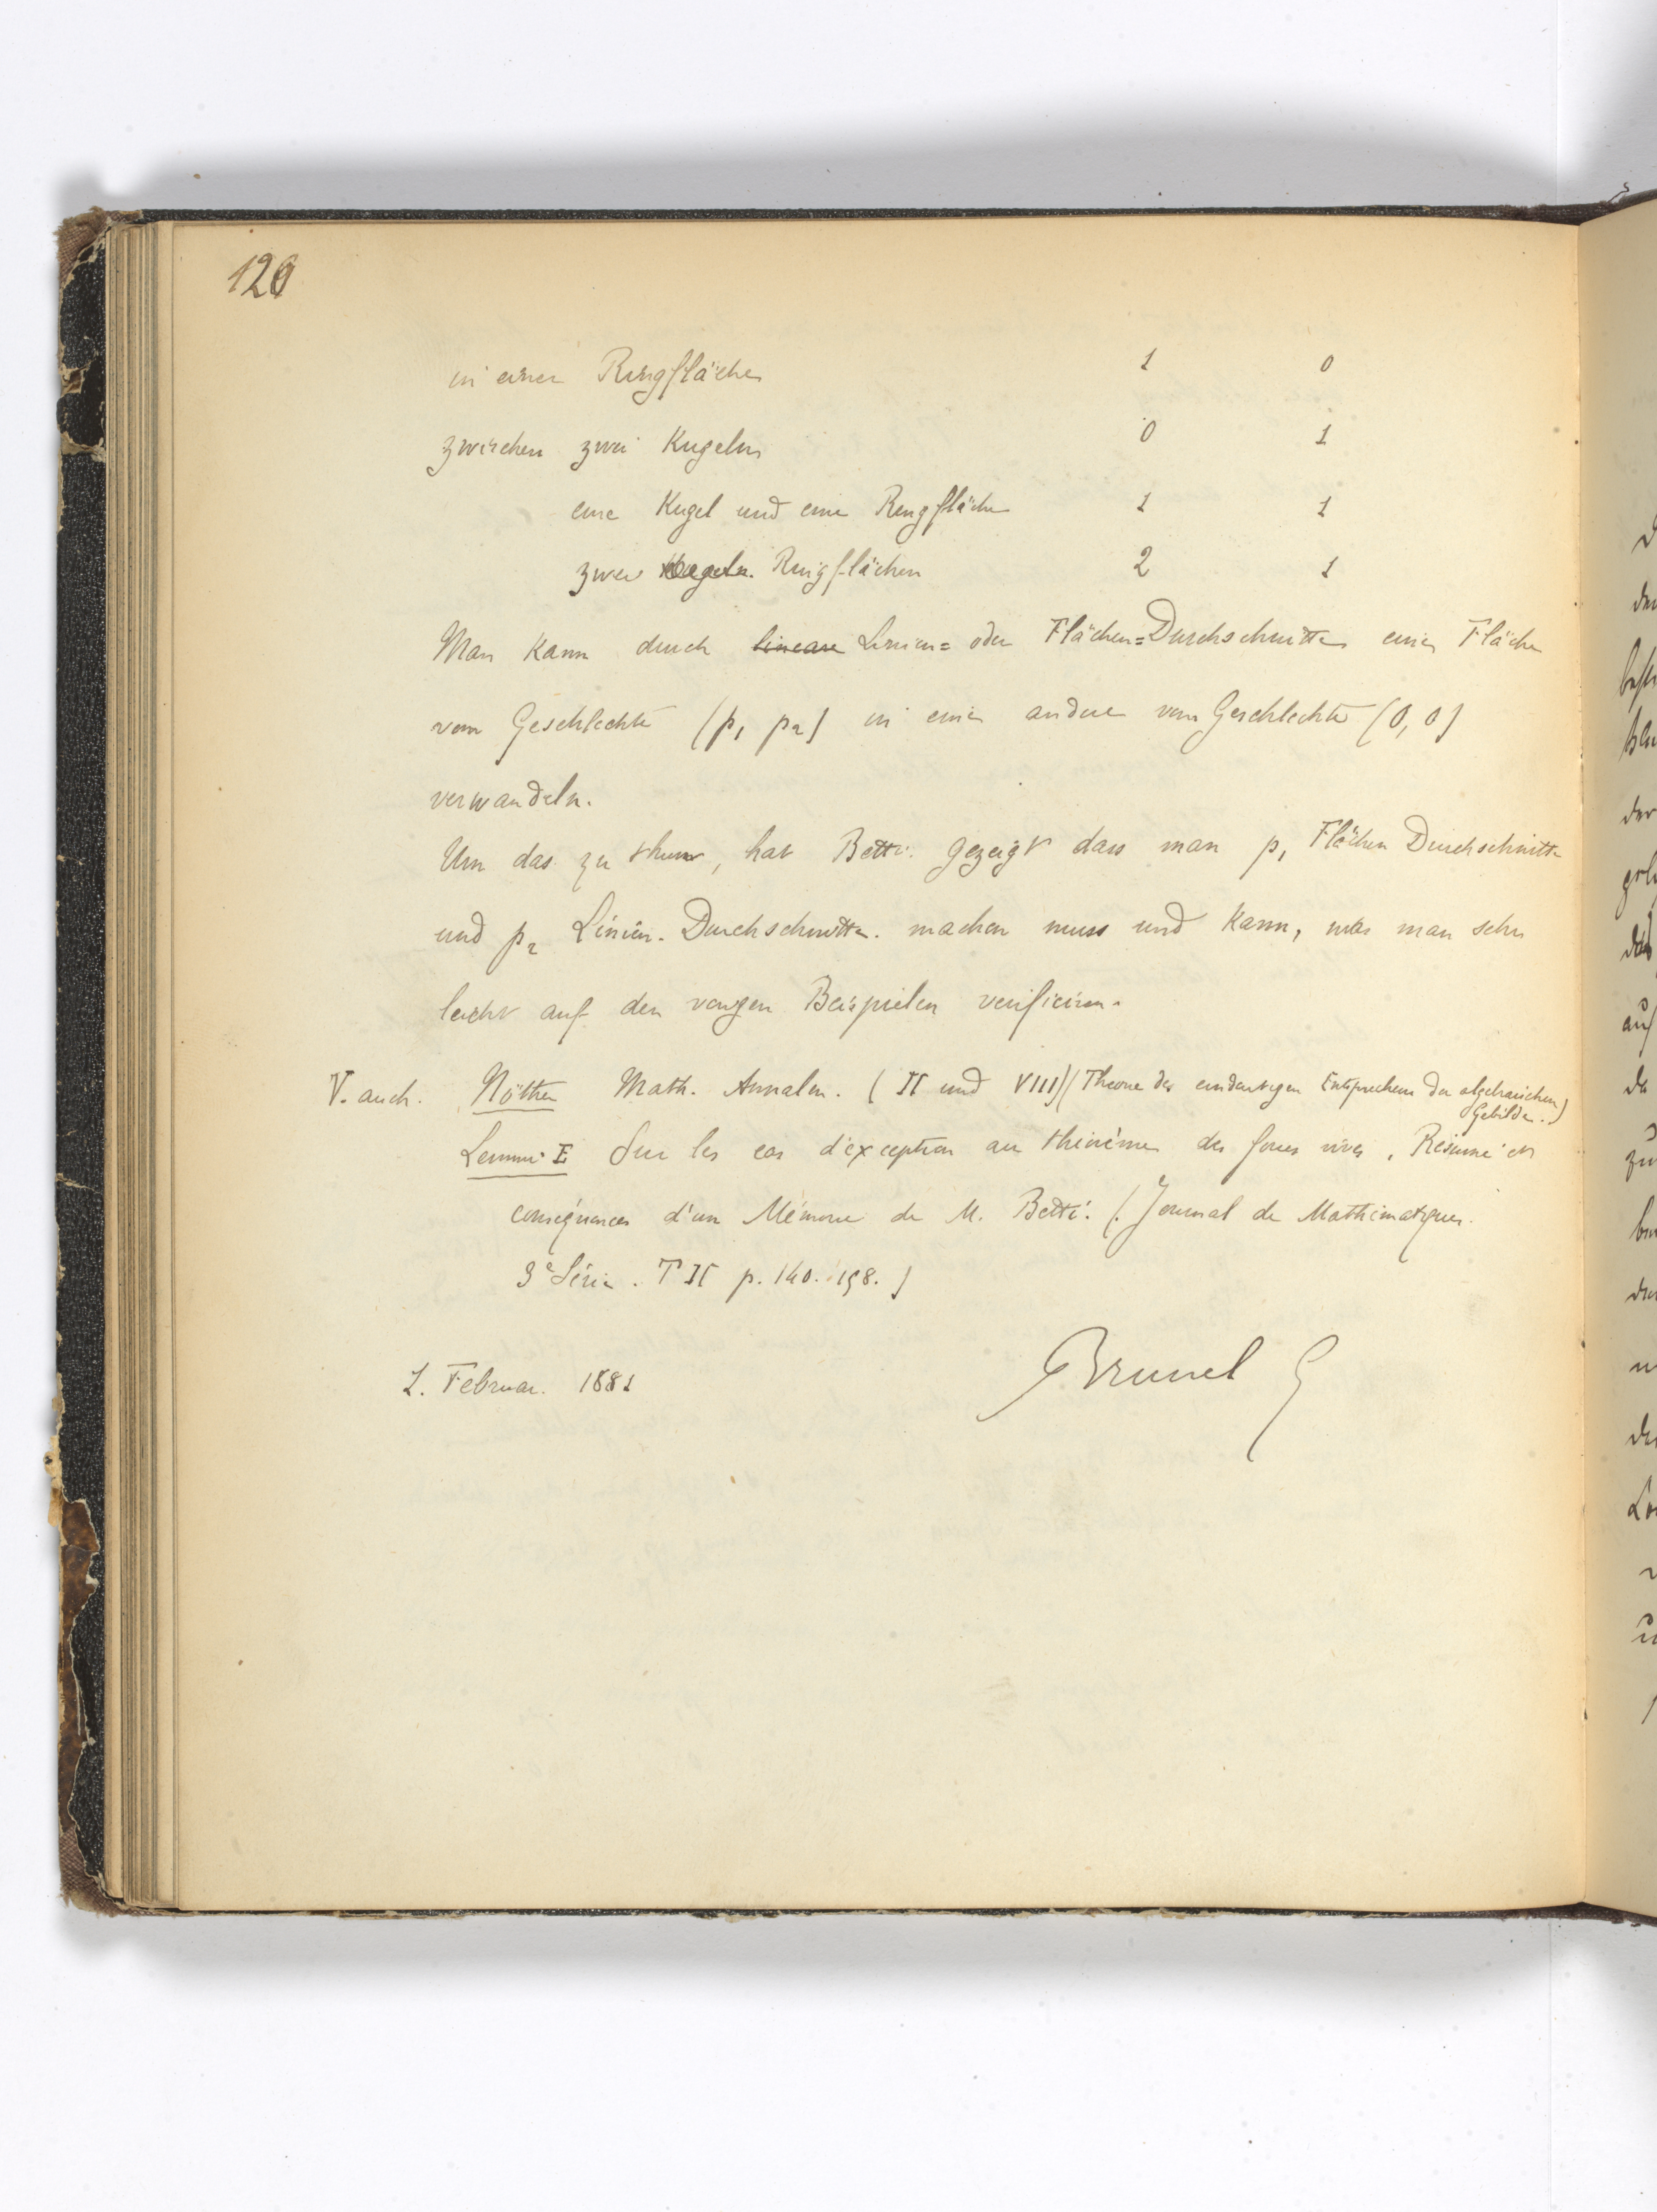 120
in einer Ringfläche 1 0
zwischen zwei Kugeln 0 1
eine Kugel und eine Ringfläche 1 1
zwei Kugeln. Ringflächen 2 1
Man kann durch lineare Linien= oder Flächen=Durchschnitte eine Fläche
vom Geschlechte (p1 p2) in eine andere vom Geschlechte (0, 0)
verwandeln.
Um das zu thun, hat Betti gezeigt dass man p1 Flächen Durchschnitte
und p2 Linien-Durchschnitte machen muss und kann, was man sehr
leicht auf den vorigen Beispielen verificiren.
V. auch. Nöther Math. Annalen. (II und VIII) (Theorie des eindeutigen Entsprechens der algebraischen
Gebilde..)
Sur les cas d'exception au théorème des forces vives, Résumé et
conséquences d'un Mémoire de M. Betti. (Journal de Mathématiques.
3e Série. T II p. 140. 158.)
1. Februar. 1881 Brunel G